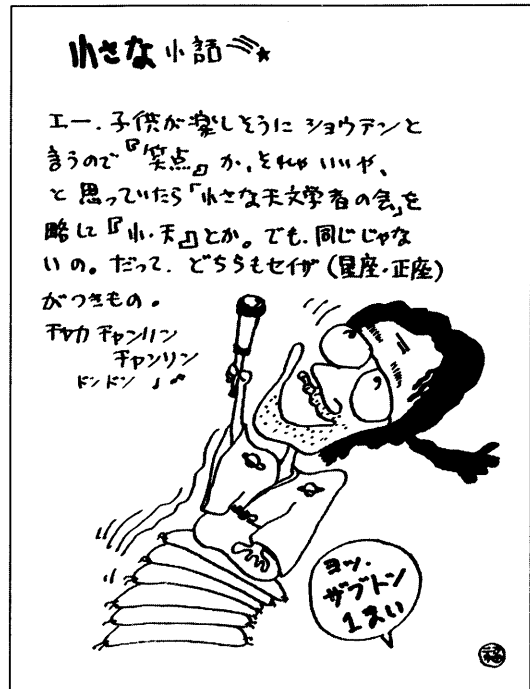 小さな小話
エー.子供が楽しそうに ショウテンと
言うので『笑点』か、それゃ いいや、
と思っていたら「小さな天文学者の会」を
略して『小・天』とか。でも、同じじゃな
いの。だって、どちらもセイザ(星座・正座)
がつきもの。
チャカ チャンリン
チャンリン
ドンドン ♩ ♪
ヨッ.
ザブトン
1まい
福